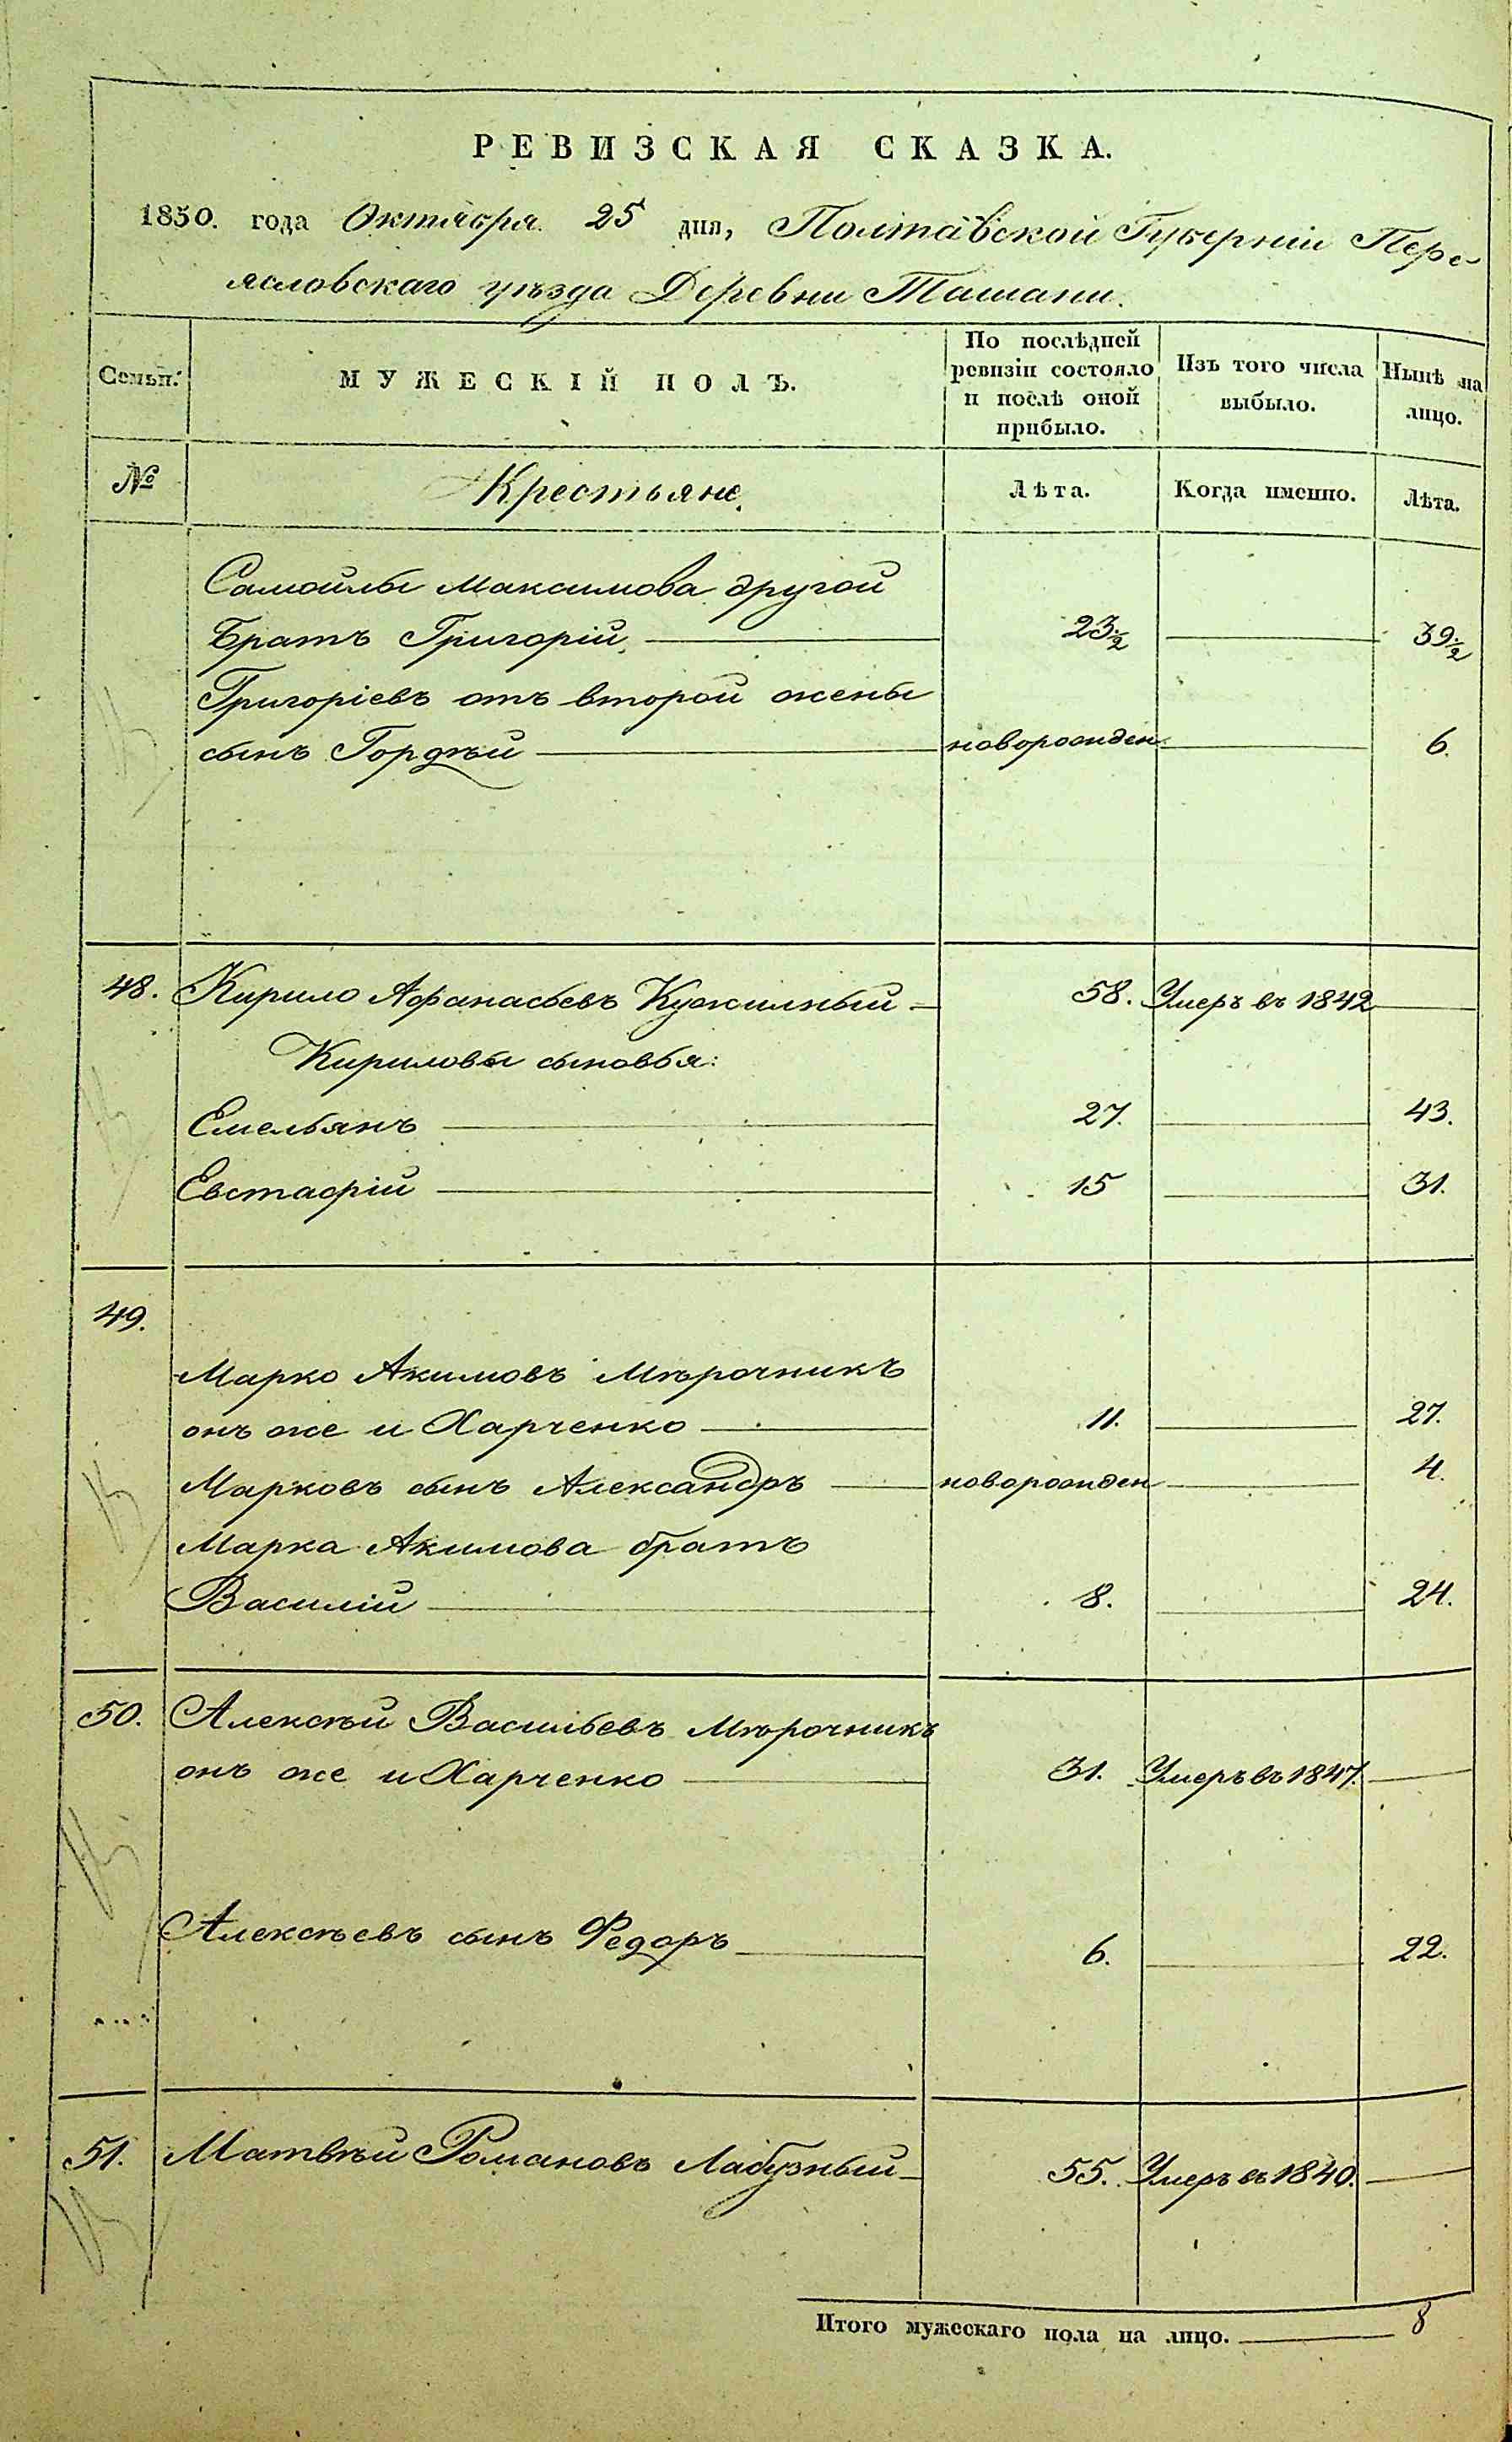 РЕВИЗСКАЯ СКАЗКА.
1850. года Октября 25 дня, Полтавской Губерніи Пере-
яславскаго уѣзда Деревни Ташани.
Семьи. МУЖЕСКІЙ ПОЛЪ. По послѣдней ревизіи состояло и послѣ оной прибыло. Изъ того числа выбыло. Нынѣ на лицо.
№ Крестьяне. Лѣта. Когда именно. Лѣта.
Самойлы Максимова другой
Братъ Григорій 23½ 39½
Григоріевъ отъ второй жены
сынъ Гордѣй новорожден 6.
48. Кирило Афанасьевъ Кужильный 58. Умеръ въ 1842
Кириловы сыновья:
Емельянъ 27. 43.
Евстафій 15 31.
49.
Марко Акимовъ Мѣрочникъ
онъ же и Харченко 11. 27.
Марковъ сынъ Александръ новорожден 4.
Марка Акимова братъ
Василій 8. 24.
50. Алексѣй Васильевъ Мѣрочникъ
онъ же и Харченко 31. Умеръ въ 1847.
Алексѣевъ сынъ Федоръ 6. 22.
51. Матвѣй Романовъ Лабузный 55. Умеръ въ 1840.
Итого мужескаго пола на лицо. 8